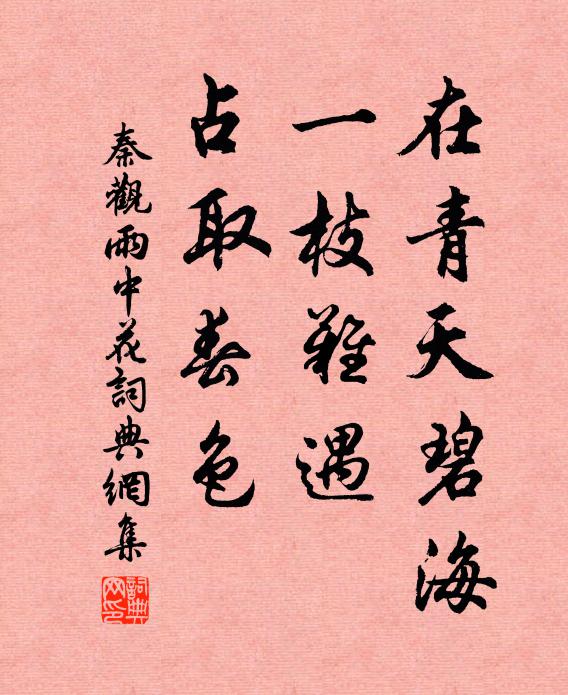 在青天碧海
一枝難遇
占取春色
秦觀雨中花詞典網集
詞典網印